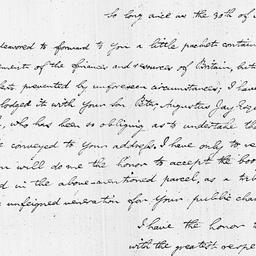 So long since as the 30th of
deavored to forward to you a little packet contain
ment of the finances and resources of Britain, but
prevented by unforeseen circumstances; I have
lodged it with your Son Peter Augustus Jay Esq
who has been so obliging as to undertake th
conveyed to your address. I have only to re
will do me the honor to accept the boo
d in the above-mentioned parcel, as a trib
unfeigned veneration for your public char
I have the honor t
with the greatest respe